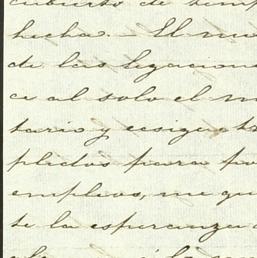 cubierto de simp
hecha. - El m
de las legacione
ce al solo el m
tario y exiguo
pleidos para po
empleos, me qu
se la esperanza